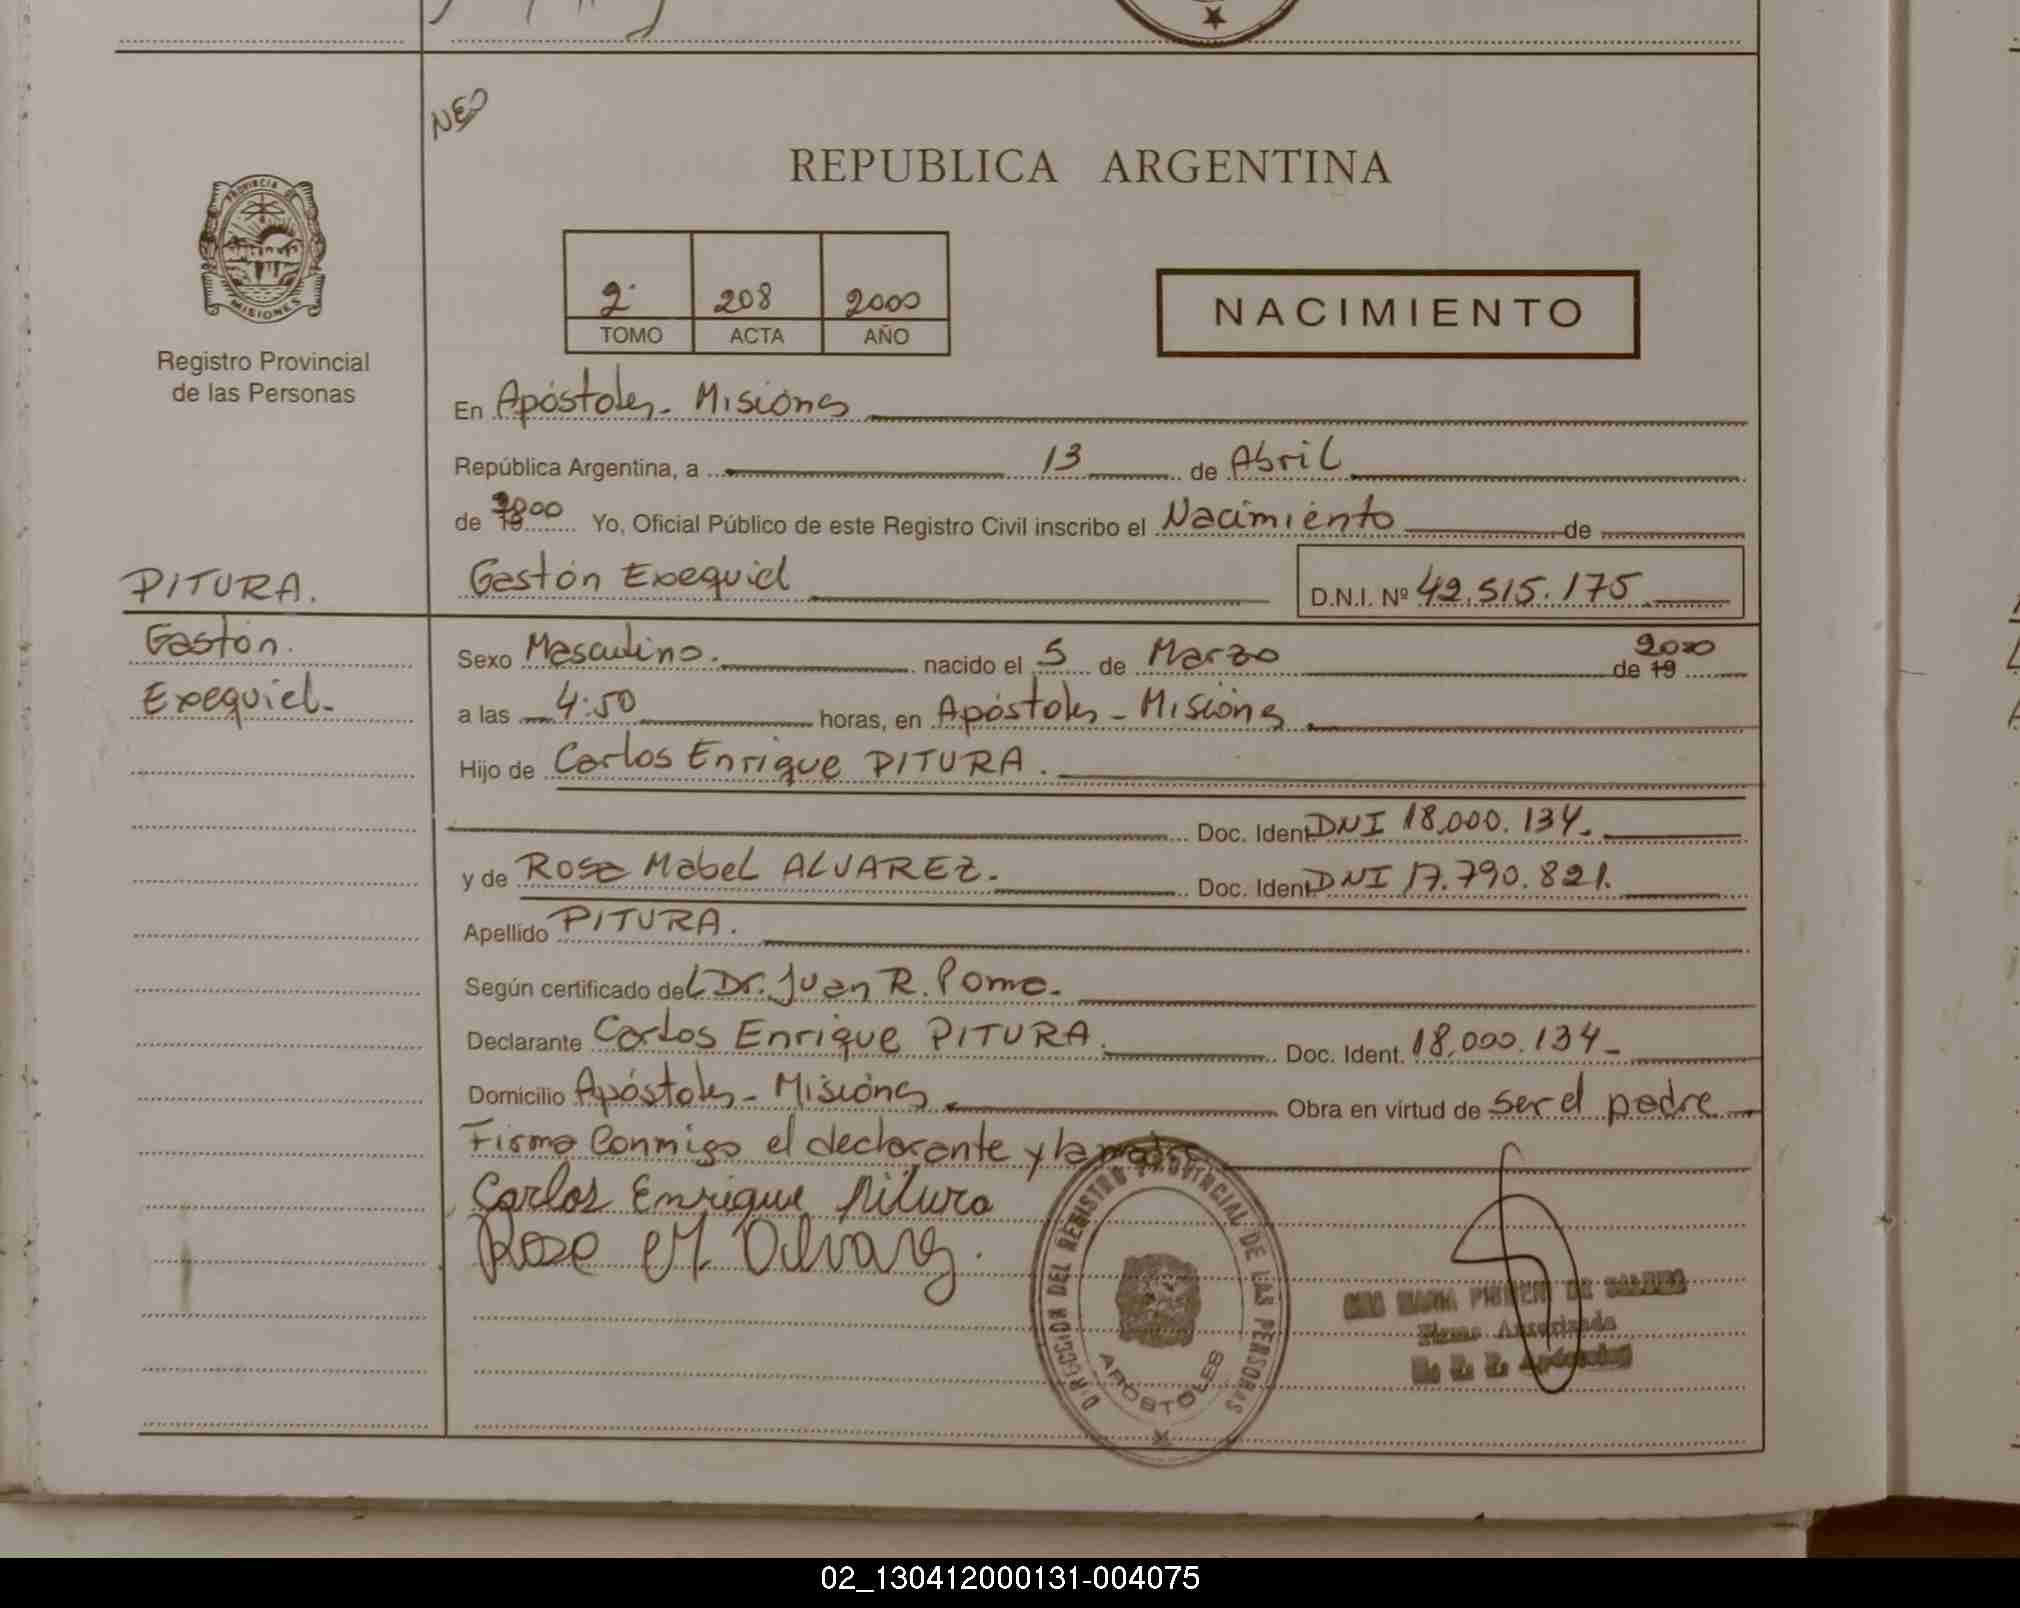 NEO
REPUBLICA ARGENTINA
PROVINCIA DE MISIONES
Registro Provincial
de las Personas
2· 208 2000
TOMO ACTA AÑO
NACIMIENTO
En Apóstoles - Misiones
República Argentina, a 13 de Abril
de 2000 Yo, Oficial Público de este Registro Civil inscribo el Nacimiento de
PITURA.
Gastón Exequiel D.N.I. Nº 42.515.175
Gastón.
Exequiel-
Sexo Masculino. nacido el 5 de Marzo de 19 2000
a las 4:50 horas, en Apóstoles - Misiones
Hijo de Carlos Enrique PITURA.
Doc. Ident. DNI 18.000.134.
y de Rosa Mabel ALVAREZ. Doc. Ident. DNI 17.790.821.
Apellido PITURA.
Según certificado del Dr. Juan R. Pomo.
Declarante Carlos Enrique PITURA. Doc. Ident. 18.000.134-
Domicilio Apóstoles - Misiones Obra en virtud de ser el padre
Firma Conmigo el declarante y la madre
Carlos Enrique Pitura
Rosa M Alvarez.
DIRECCION DEL REGISTRO PROVINCIAL DE LAS PERSONAS
APOSTOLES
MARIA DE
Firma Autorizada
Apóstoles
02_130412000131-004075